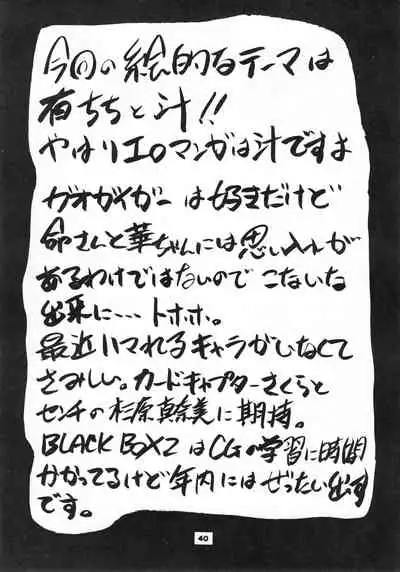 今回の絵的なテーマは
有ちちと汁!!
やはりエロマンガは汁ですよ
ガオガイガーは好きだけど
命さんと華ちゃんには思い入れが
あるわけではないので こないな
出来に… トホホ。
最近ハマれるキャラがいなくて
さみしい。カードキャプターさくらと
センチの杉原真奈美に期待。
BLACK BOX2 はCGの学習に時間
かかってるけど年内にはぜったい出す
です。
40